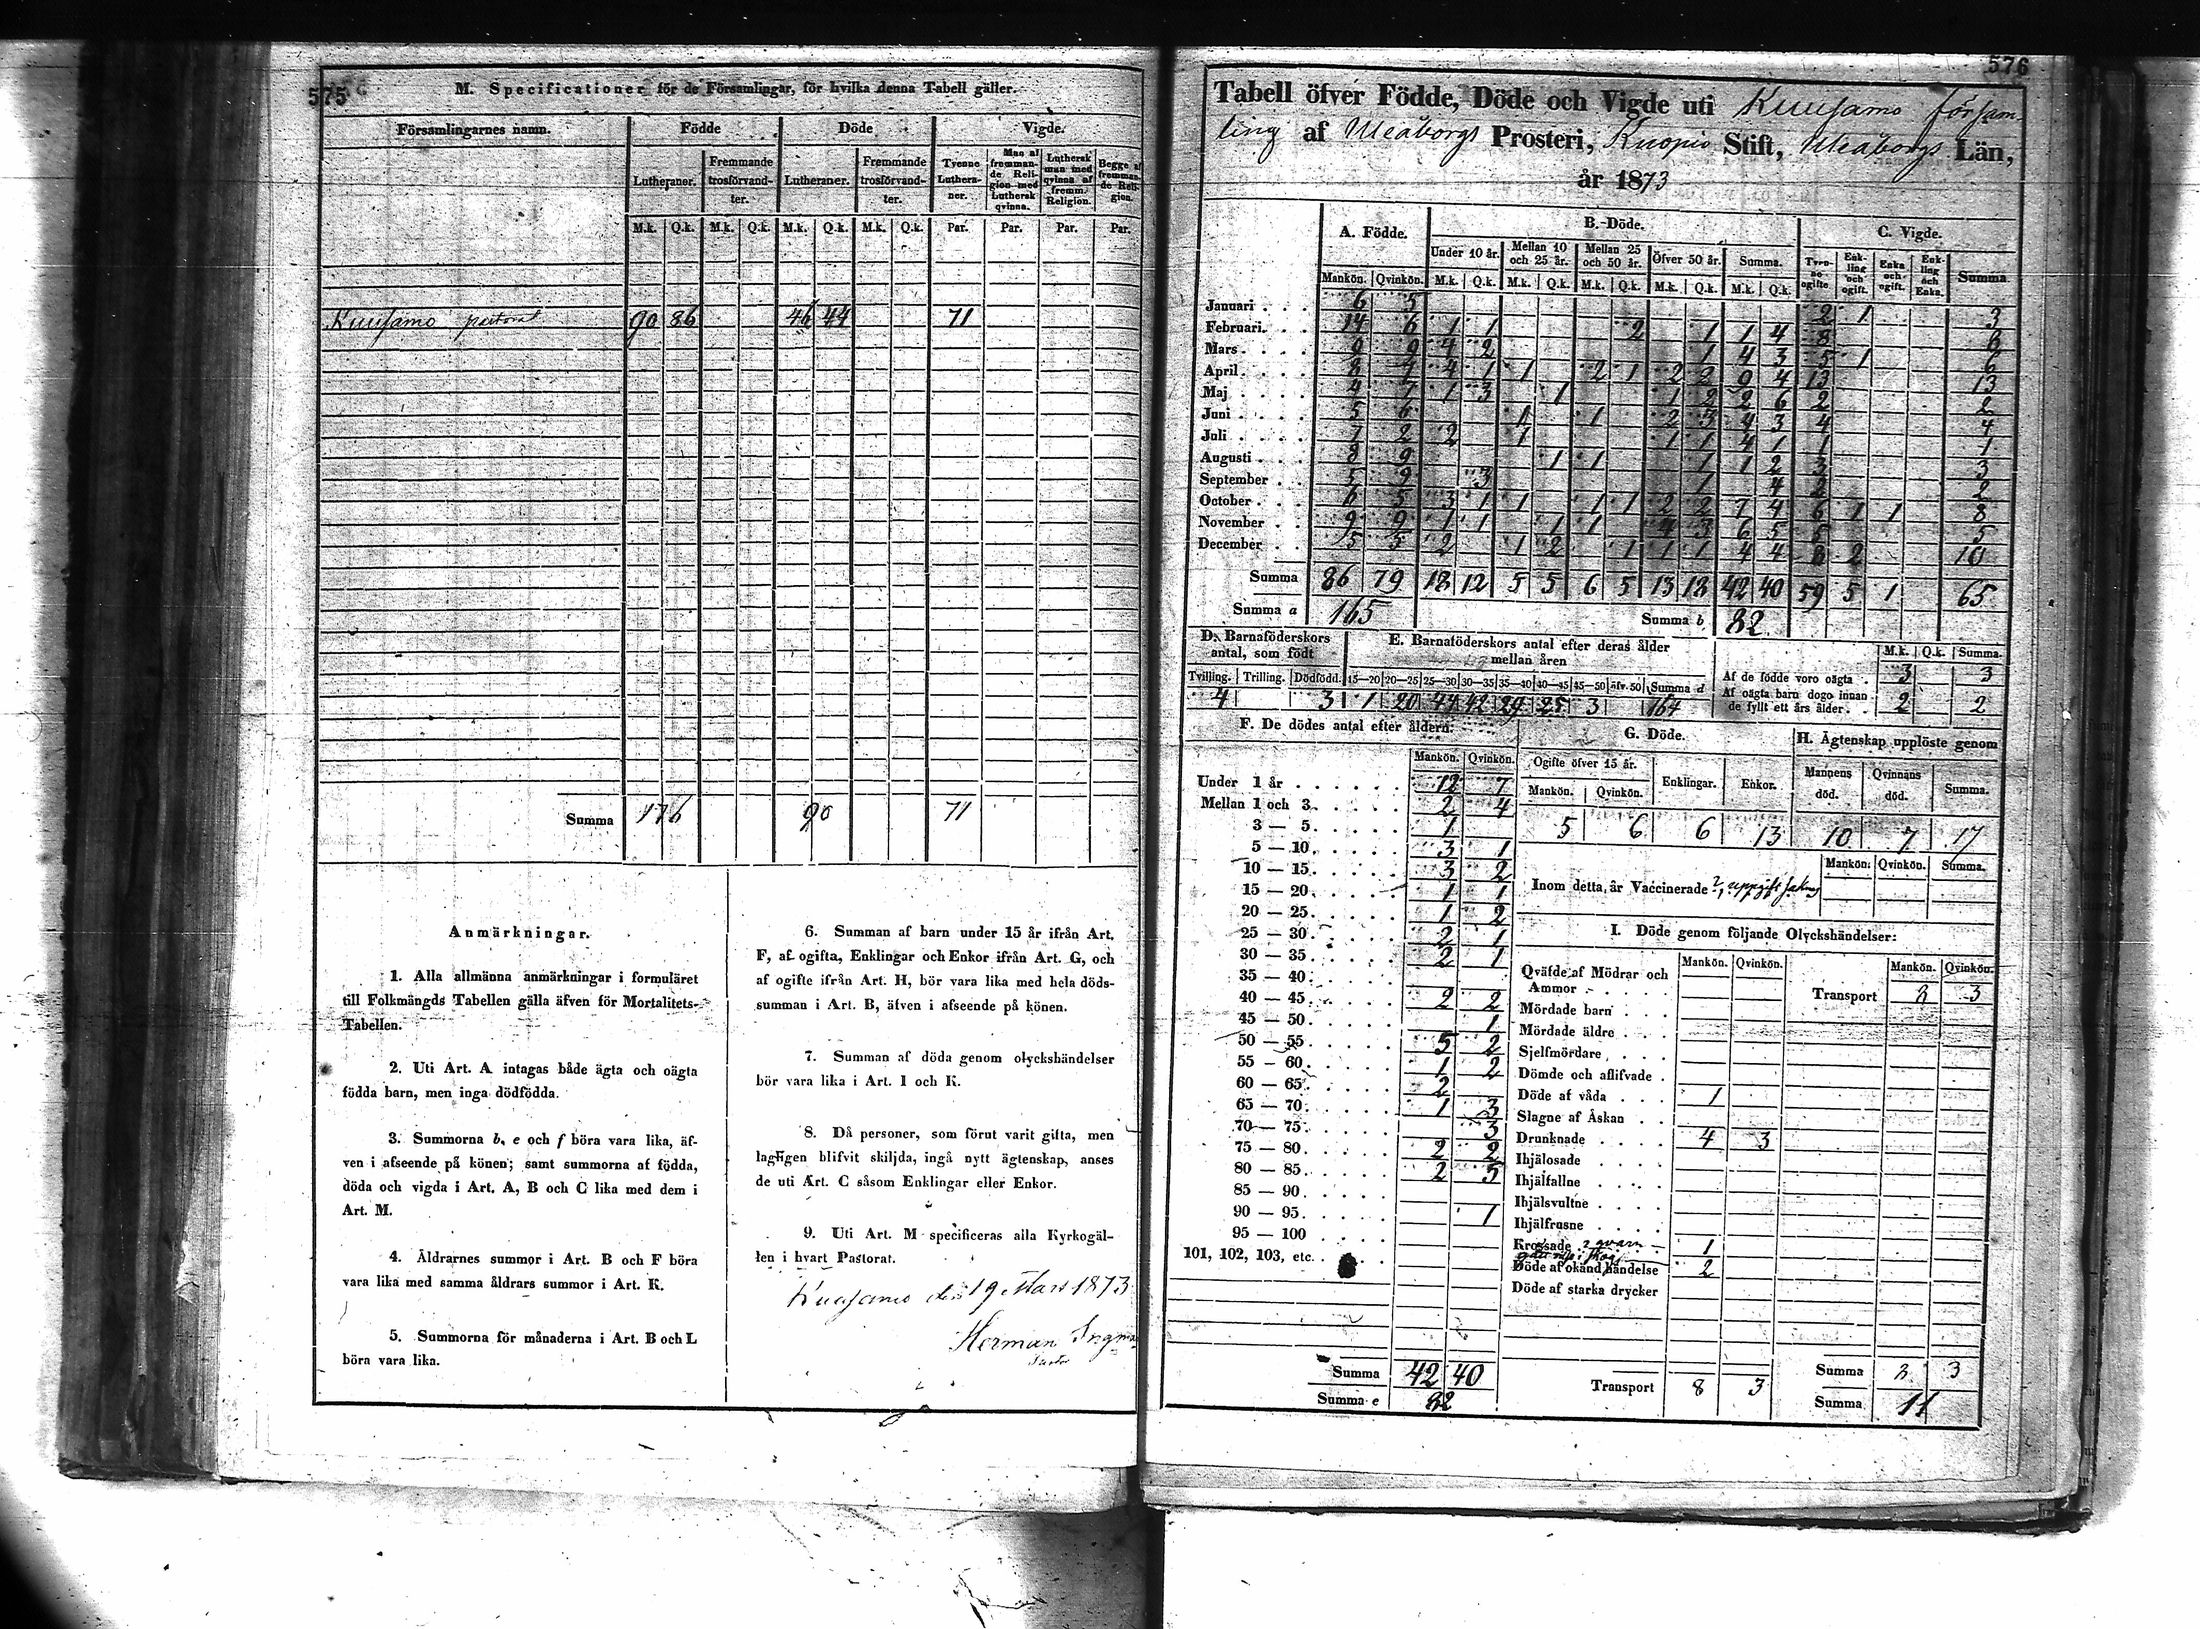 575
M. Specificationer för de Församlingar, för hvilka denna Tabell gäller.
Församlingarnes namn. Födde Döde Vigde.
Lutheraner. Fremmande trosförvandter. Lutheraner. Fremmande trosförvandter. Tvenne Lutheraner. Man af fremmande Religion med Luthersk qvinna. Luthersk man med qvinna af fremm. Religion. Begge af fremmande Religion.
M.k. Q.k. M.k. Q.k. M.k. Q.k. M.k. Q.k. Par. Par. Par. Par.
Kuusamo pastorat 90 86 46 44 71
Summa 176 90 71
Anmärkningar.
1. Alla allmänna anmärkningar i formuläret
till Folkmängds Tabellen gälla äfven för Mortalitets-
Tabellen.
2. Uti Art. A intagas både ägta och oägta
födda barn, men inga dödfödda.
3. Summorna b, e och f böra vara lika, äf-
ven i afseende på könen; samt summorna af födda,
döda och vigda i Art. A, B och C lika med dem i
Art. M.
4. Åldrarnes summor i Art. B och F böra
vara lika med samma åldrars summor i Art. K.
5. Summorna för månaderna i Art. B och L
böra vara lika.
6. Summan af barn under 15 år ifrån Art.
F, af ogifta, Enklingar och Enkor ifrån Art. G, och
af ogifte ifrån Art. H, bör vara lika med hela döds-
summan i Art. B, äfven i afseende på könen.
7. Summan af döda genom olyckshändelser
bör vara lika i Art. I och K.
8. Då personer, som förut varit gifta, men
lagligen blifvit skiljda, ingå nytt ägtenskap, anses
de uti Art. C såsom Enklingar eller Enkor.
9. Uti Art. M specificeras alla Kyrkogäl-
len i hvart Pastorat.
Kuusamo den 19 Mars 1873
Herman Ingman
576
Tabell öfver Födde, Döde och Vigde uti Kuusamo försam-
ling af Uleåborgs Prosteri, Kuopio Stift, Uleåborgs Län,
år 1873
A. Födde. B. Döde. C. Vigde.
Under 10 år. Mellan 10 och 25 år. Mellan 25 och 50 år. Öfver 50 år. Summa. Tvenne ogifte. Enkling och ogift. Enka och ogift. Enkling och Enka. Summa
Mankön. Qvinkön. M.k. Q.k. M.k. Q.k. M.k. Q.k. M.k. Q.k. M.k. Q.k.
Januari 6 5 2 1 3
Februari 14 6 1 1 2 1 1 4 8 8
Mars 9 9 4 2 1 4 3 5 1 6
April 8 7 4 1 1 2 1 2 2 9 4 13 13
Maj 4 7 1 3 1 1 2 2 6 2 2
Juni 5 6 1 1 2 3 4 3 4 4
Juli 7 2 2 1 1 1 4 1 1 1
Augusti 8 9 1 1 1 1 2 3 3
September 5 9 3 1 4 2 2
October 6 5 3 1 1 1 1 2 2 7 4 6 1 1 8
November 9 9 1 1 1 1 4 3 6 5 5 5
December 5 5 2 1 2 1 1 1 4 4 8 2 10
Summa 86 79 18 12 5 5 6 5 13 18 42 40 59 5 1 65
Summa a 165 Summa b 82
D. Barnaföderskors antal, som födt
E. Barnaföderskors antal efter deras ålder mellan åren
M.k. Q.k. Summa.
Tvilling. Trilling. Dödfödd. 15—20 20—25 25—30 30—35 35—40 40—45 45—50 öfv. 50 Summa d
4 3 1 20 44 42 29 25 3 164
Af de födde voro oägta 3 3
Af oägta barn dogo innan de fyllt ett års ålder 2 2
F. De dödes antal efter åldern:
Mankön. Qvinkön.
Under 1 år 12 7
Mellan 1 och 3 2 4
3 — 5 1
5 — 10 3 1
10 — 15 3 2
15 — 20 1 1
20 — 25 1 2
25 — 30 2 1
30 — 35 2 1
35 — 40
40 — 45 2 2
45 — 50 1
50 — 55 5 2
55 — 60 1 2
60 — 65 2
65 — 70 1 3
70 — 75 3
75 — 80 2 2
80 — 85 2 5
85 — 90
90 — 95 1
95 — 100
101, 102, 103, etc.
Summa 42 40
Summa e 82
G. Döde.
Ogifte öfver 15 år. Enklingar. Enkor.
Mankön. Qvinkön.
5 6 6 13
H. Ägtenskap upplöste genom
Mannens död. Qvinnans död. Summa.
10 7 17
Mankön. Qvinkön. Summa.
Inom detta år Vaccinerade ?, uppgift saknas
I. Döde genom följande Olyckshändelser:
Mankön. Qvinkön. Mankön. Qvinkön.
Qväfde af Mödrar och Ammor
Transport 8 3
Mördade barn
Mördade äldre
Sjelfmördare
Dömde och aflifvade
Döde af våda 1
Slagne af Åskan
Drunknade 4 3
Ihjälosade
Ihjälfallne
Ihjälsvultne
Ihjälfrusne
Krossade i qvarn 1
Döde af okänd händelse 2
Döde af starka drycker
Transport 8 3
Summa 8 3
Summa 11